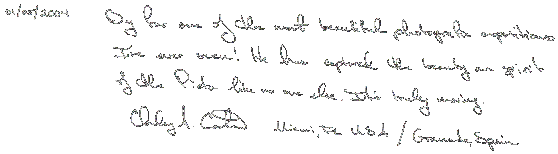 01/05/2004 By far one of the most beautiful photographic expositions
I've ever seen! He has captured the beauty an spirit
of the like no one else. It's truly moving.
Charley A. Miami, FL USA / Granada, Spain